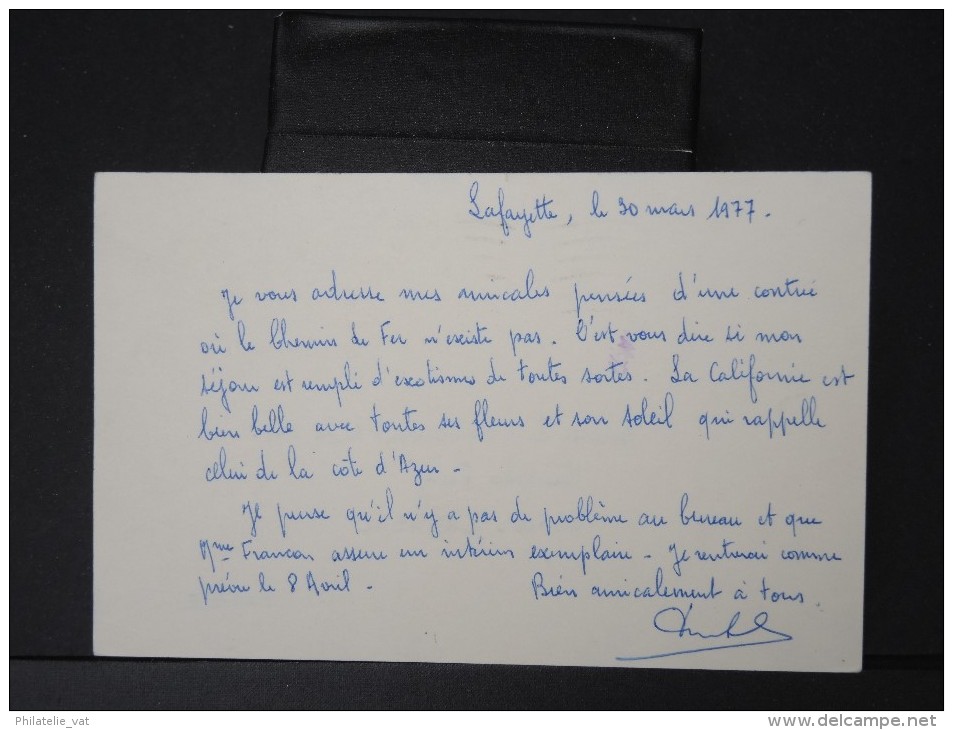 Lafayette, le 30 mars 1977.
Je vous adresse mes amicales pensées d'une contrée
où le Chemin de Fer n'existe pas. C'est vous dire si mon
séjour est rempli d'exotismes de toutes sortes. La Californie est
bien belle avec toutes ses fleurs et son soleil qui rappelle
celui de la côte d'Azur -
Je pense qu'il n'y a pas de problème au bureau et que
Mme Francon assure un intérim exemplaire - Je rentrerai comme
prévu le 8 Avril - Bien amicalement à tous.
Philatelie_vat
www.delcampe.net